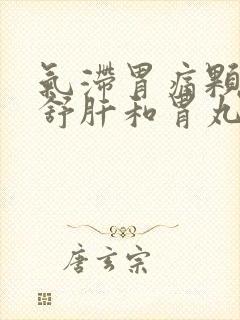 氣滯胃痛顆
舒肝和胃丸
唐玄宗